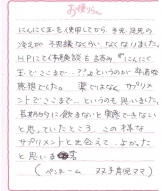 お便りから
にんにく玉を使用してから、手足、足先の
冷えが不思議なくらいなくなりました。
HPにて体験談を読み "にんにく
玉でここまで…??" というのが率直な
感想でした。薬ではなく、サプリメ
ントでここまで…というのも思いました。
長期的に飲まないと実感できない
と思っていたところ、この様な
サプリメントと出会えて、よかった
と思います
(ペンネーム 双子育児ママ)